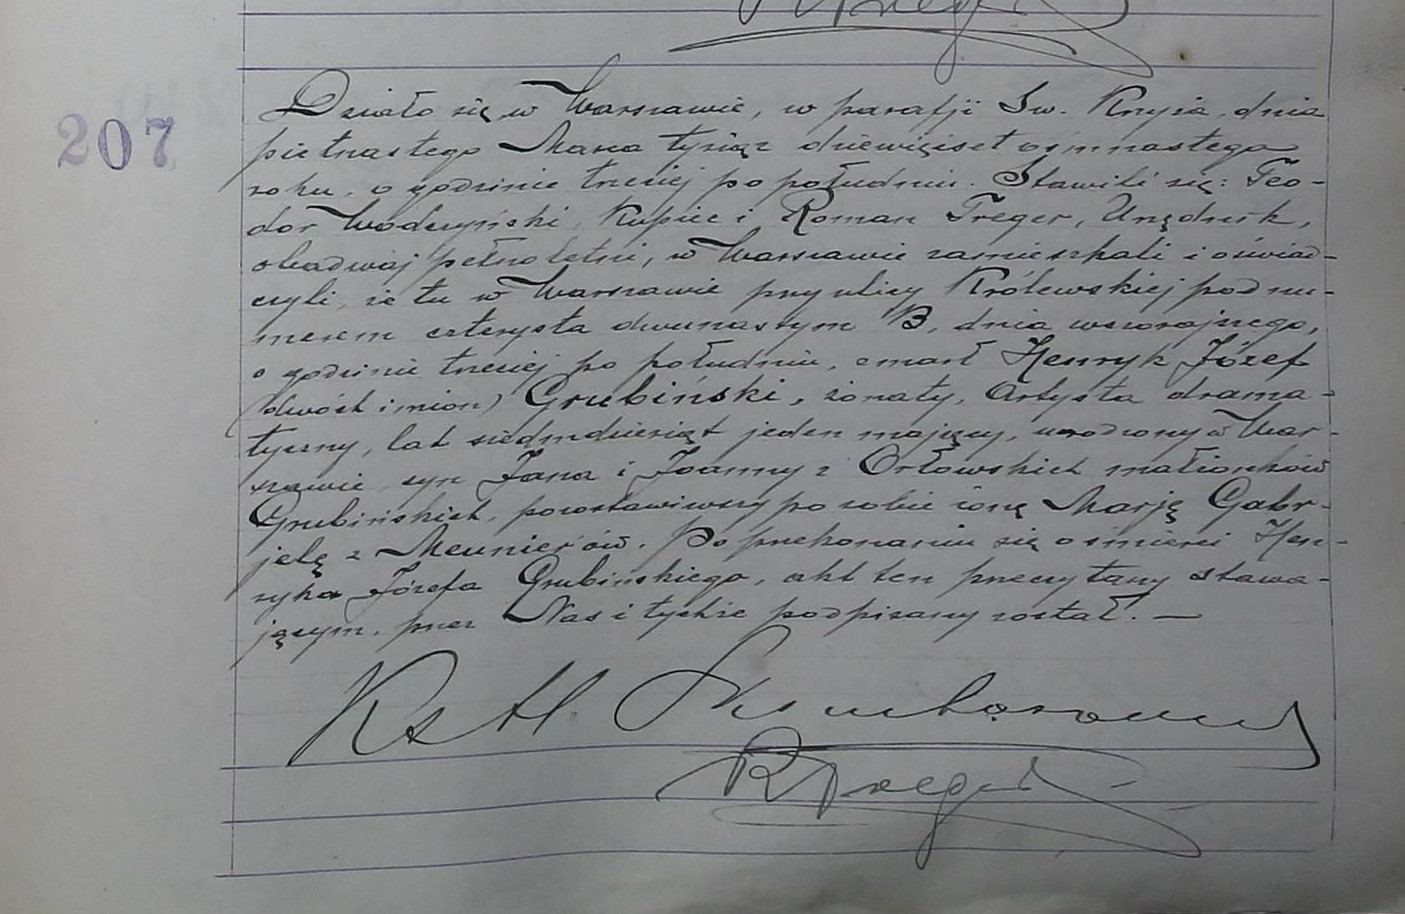 207
Działo się w Warszawie, w parafji Św. Krzyża, dnia
piętnastego Marca tysiąc dziewięćset osmnastego
roku, o godzinie trzeciej po południu. Stawili się: Teo-
dor Wodczyński, Kupiec i Roman Treger, Urzędnik,
obadwaj pełnoletni, w Warszawie zamieszkali i oświad-
czyli, że tu w Warszawie przy ulicy Królewskiej pod nu-
merem czterysta dwunastym B, dnia wczorajszego,
o godzinie trzeciej po południu, zmarł Henryk Józef
(dwóch imion) Grubiński, żonaty, Artysta drama-
tyczny, lat siedmdziesiąt jeden mający, urodzony w War-
szawie syn Jana i Joanny z Orłowskich małżonków
Grubińskich, pozostawiwszy po sobie żonę Marję Gabr-
jelę z Meunier'ów. Po przekonaniu się o śmierci Hen-
ryka Józefa Grubińskiego, akt ten przeczytany stawa-
jącym, przez Nas i tychże podpisany został. —
Ks H
R Treger